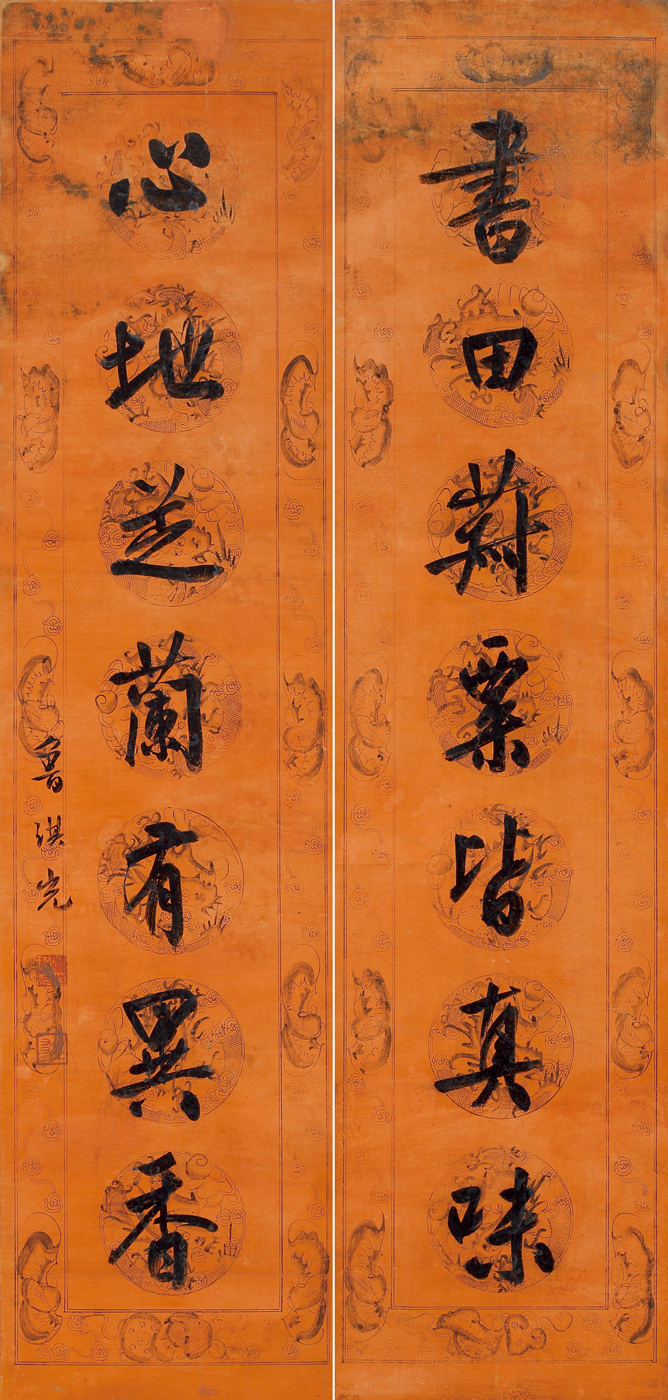 書田菽粟皆真味
心地芝蘭有異香
魯琪光